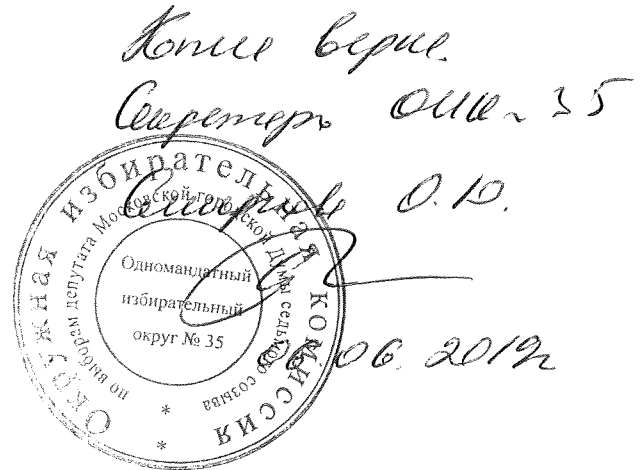 Копия верна.
Секретарь ОИК № 35
О.Ю.
06. 2019г
Окружная избирательная комиссия
по выборам депутата Московской городской Думы седьмого созыва
Одномандатный
избирательный
округ № 35